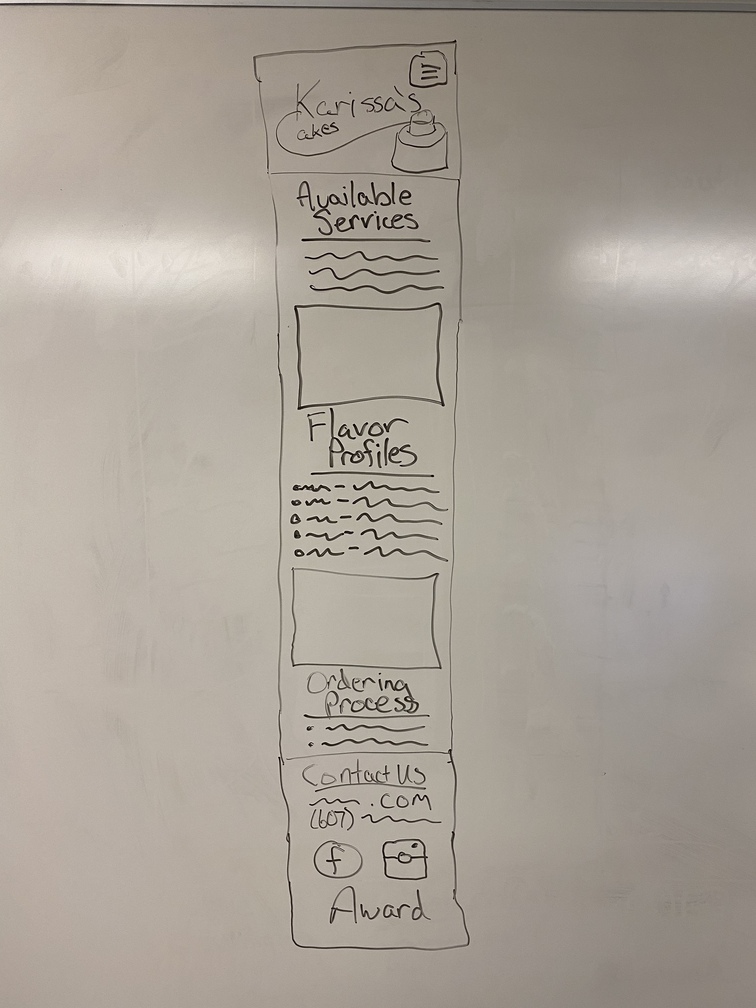 Karissa's
Cakes
Available
Services
Flavor
Profiles
Ordering
Process
Contact Us
.com
(607)
f
Award